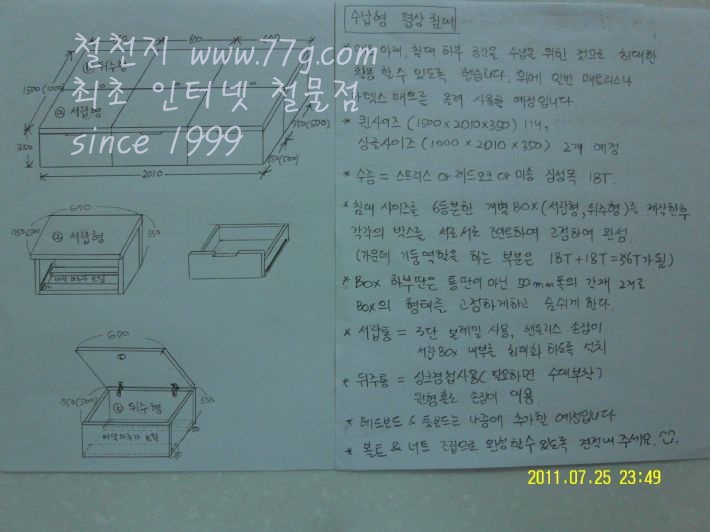 수납형 평상 침대
철천지 www.77g.com
최초 인터넷 철물점
since 1999
670
1500(1000)
ⓑ 뒤주형
ⓐ 서랍형
350
750(500)
750(500)
2010
670
ⓐ 서랍형
750(500)
350
바닥 마루가 보임
670
750(500)
350
ⓑ 뒤주형
바닥마루가 보임
* 아래, 침대 하부 공간을 수납을 위한 것으로 최대한
활용 할 수 있도록 했습니다. 위에 일반 매트리스나
라텍스 매트를 올려 사용할 예정입니다.
* 퀸사이즈 (1500×2010×350) 1개,
싱글사이즈 (1000×2010×350) 2개 예정.
* 수종 = 스프러스 or 레드오크 or 미송 집성목 18T.
* 침대 사이즈를 6등분한 개별 BOX (서랍형, 뒤주형)를 제작한후
각각의 박스를 서로서로 고정하여 완성.
(가운데 기둥역할을 하는 부분은 18T+18T=36T가 됨)
* BOX 하부판은 통판이 아닌 50mm폭의 각재 2개로
BOX의 형태를 고정하게하고 숨쉬게 한다.
* 서랍통 = 3단 볼레일 사용, 핸들리스 손잡이
서랍 BOX 내부를 최대화 하도록 설치
* 뒤주통 = 싱크경첩사용 (필요하면 수대부착)
원형홀로 손잡이 대용.
* 헤드보드 & 풋보드는 나중에 추가할 예정입니다
* 볼트 & 너트 조립으로 완성할수 있도록 견적내 주세요.
2011.07.25 23:49